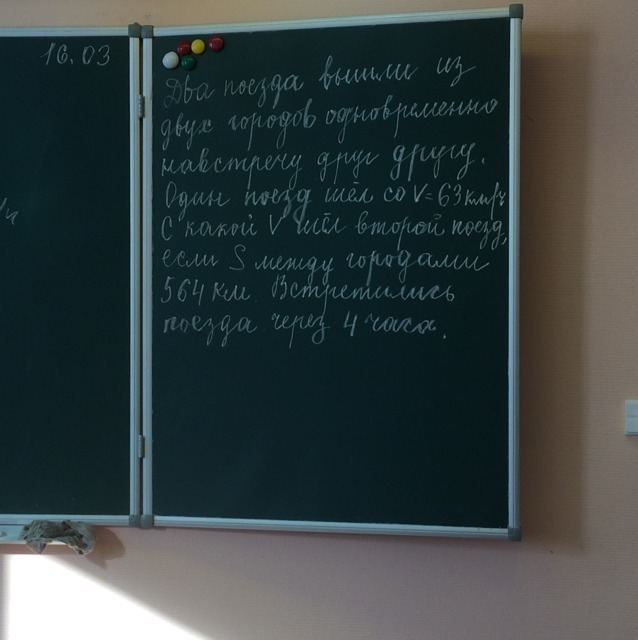 16.03
Два поезда вышли из
двух городов одновременно
навстречу друг другу.
Один поезд шёл со V=63 км/ч
С какой V шёл второй поезд,
если S между городами
564 км. Встретились
поезда через 4 часа.